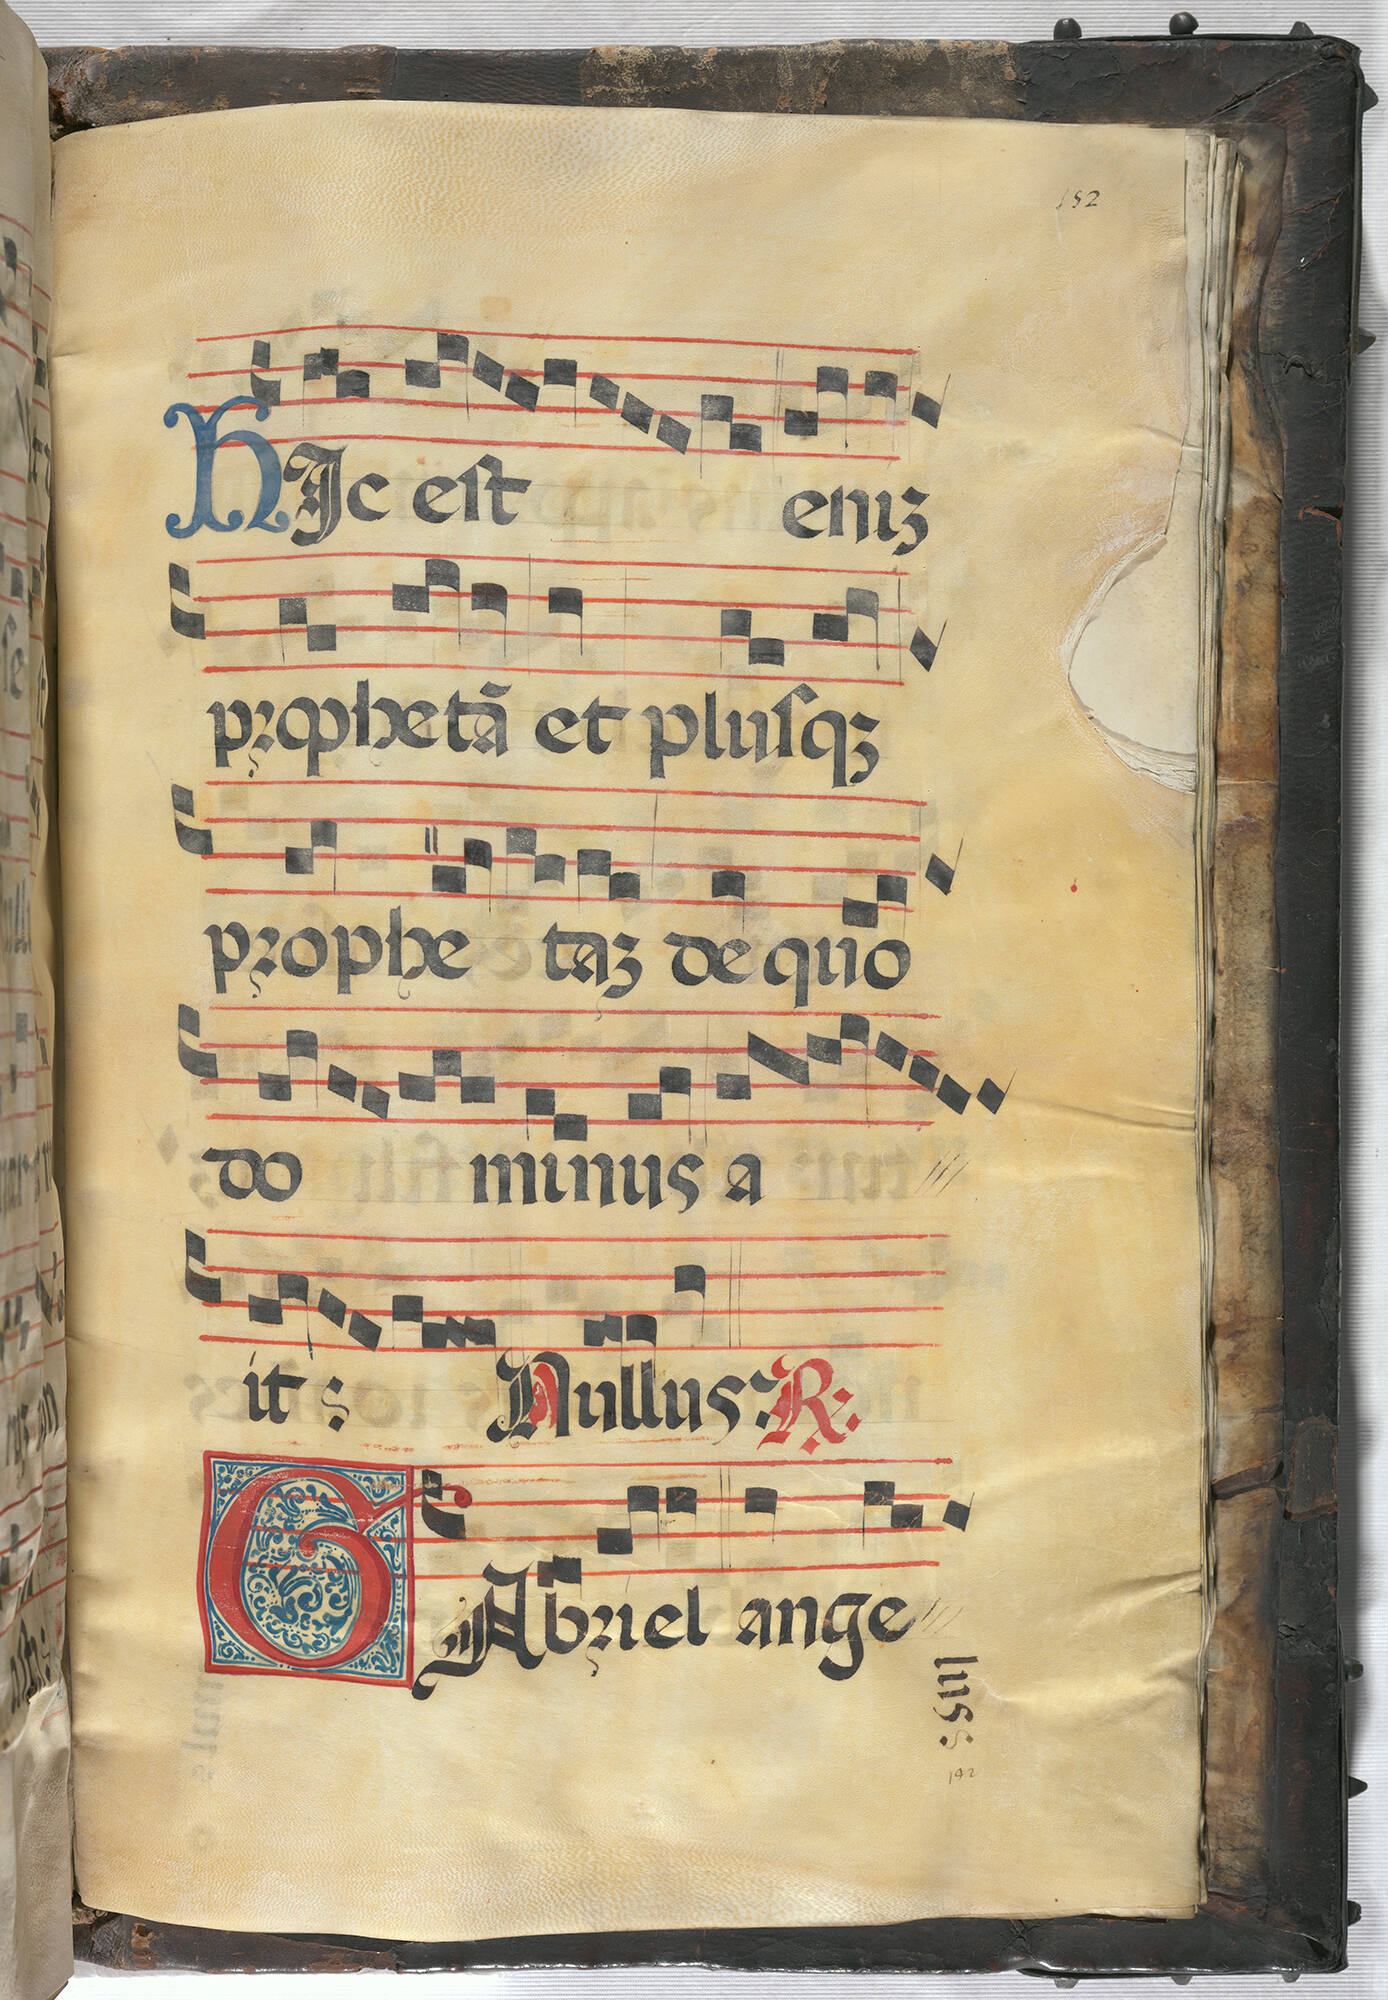 152
HIc est eniʒ
prophetã et plusqʒ
prophe taʒ de quo
do minus a
it : Nullus: R:
GAbriel ange
lus:
142